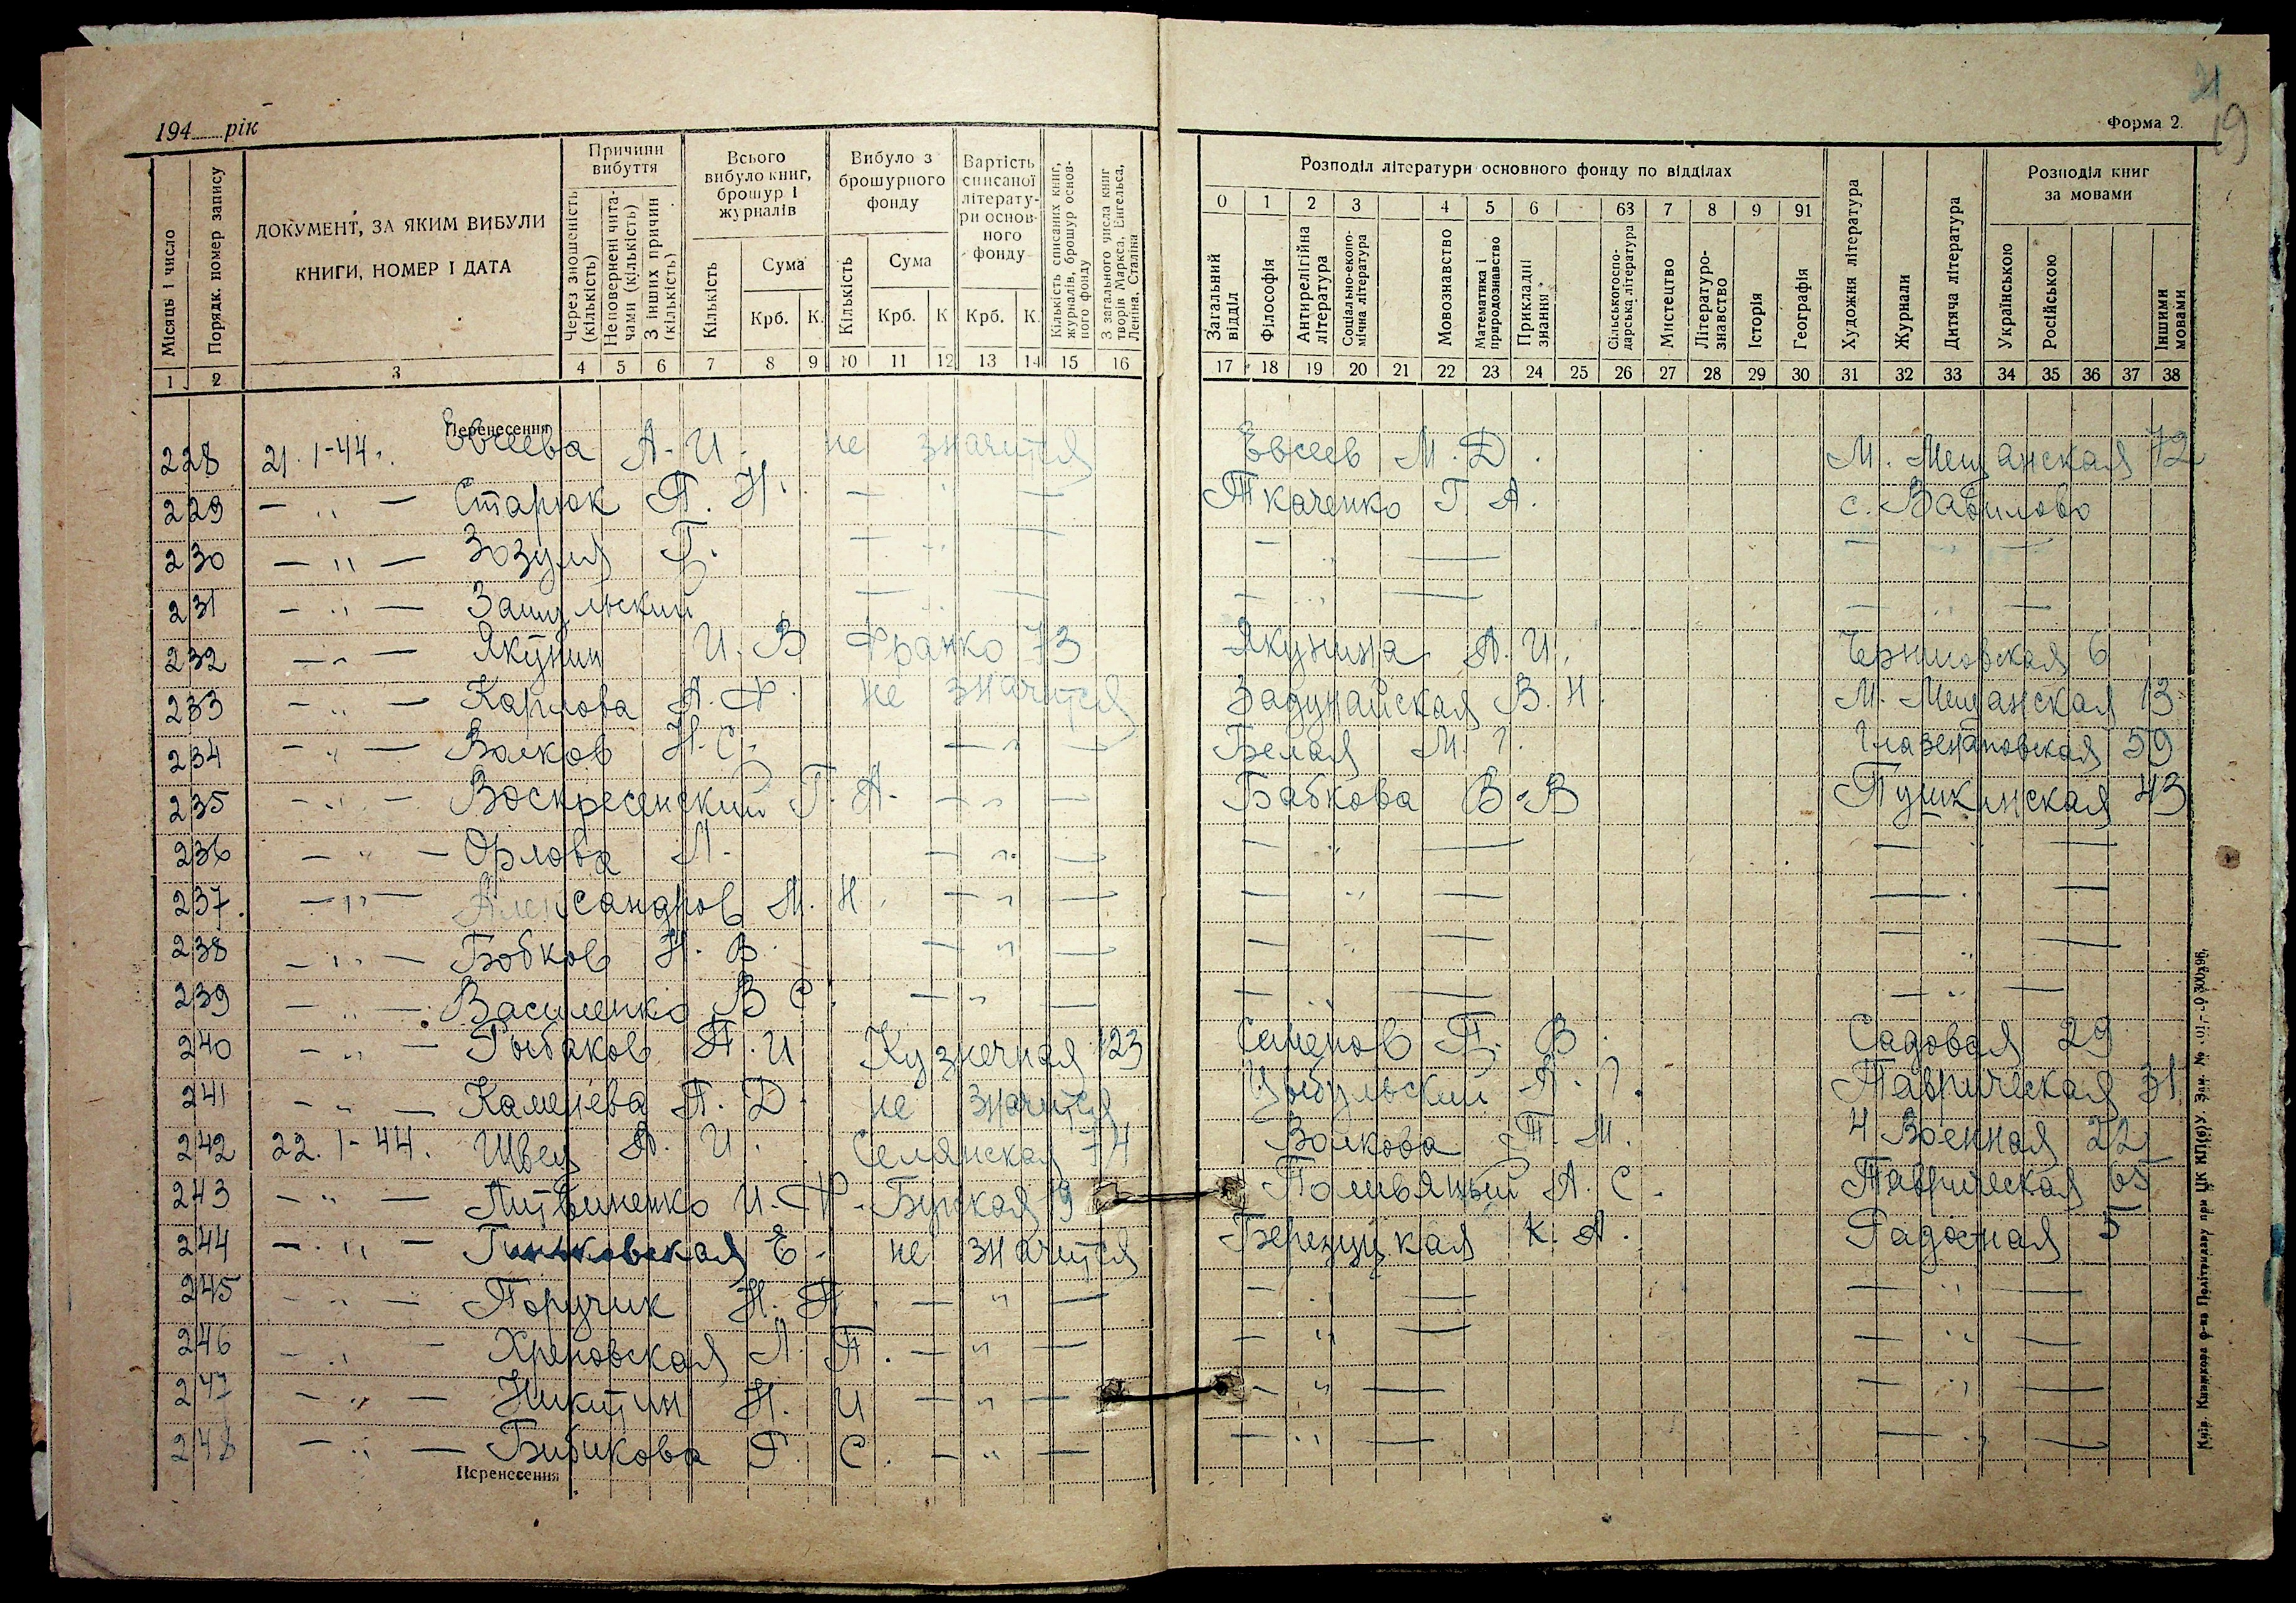 21
19
194 рік
Форма 2.
Місяць і число
Порядк. номер запису
ДОКУМЕНТ, ЗА ЯКИМ ВИБУЛИ
КНИГИ, НОМЕР І ДАТА
Причини вибуття
Через зношеність (кількість)
Неповернені читачами (кількість)
З інших причин (кількість)
Всього вибуло книг, брошур і журналів
Кількість
Сума
Крб. К.
Вибуло з брошурного фонду
Кількість
Сума
Крб. К
Вартість списаної літератури основного фонду
Крб. К.
Кількість списаних книг, журналів, брошур основного фонду
З загального числа книг творів Маркса, Енгельса, Леніна, Сталіна
Розподіл літератури основного фонду по відділах
0 1 2 3 4 5 6 63 7 8 9 91
Загальний відділ
Філософія
Антирелігійна література
Соціально-економічна література
Мовознавство
Математика і природознавство
Прикладні знання
Сільськогосподарська література
Мистецтво
Літературознавство
Історія
Географія
Художня література
Журнали
Дитяча література
Розподіл книг за мовами
Українською
Російською
Іншими мовами
1 2 3 4 5 6 7 8 9 10 11 12 13 14 15 16 17 18 19 20 21 22 23 24 25 26 27 28 29 30 31 32 33 34 35 36 37 38
Перенесення
228 21.1-44. Евсеева А. И. не значится Евсеев М. Д. М. Мещанская 72
229 — „ — Старюк П. Н. — „ — Ткаченко Г. А. с. Вавилово
230 — „ — Зозуля Г. — „ — — „ — — „ —
231 — „ — — „ — — „ — — „ —
232 — „ — Якунин И. В Франко 73 Якунина А. И. Черниговская 6
233 — „ — Карлова А. Ф. не значится Задунайская В. Н. М. Мещанская 13
234 — „ — Волков Н. С. — „ — Белая М. Г. Глазенаповская 59
235 — „ — Воскресенский Г. А. — „ — Бабкова В. В Пушкинская 43
236 — „ — Орлова Л. — „ — — „ — — „ —
237. — „ — Александров М. Н. — „ — — „ — — „ —
238 — „ — Бобков Н. В. — „ — — „ — — „ —
239 — „ — Василенко В С. — „ — — „ — — „ —
240 — „ — Рыбаков А. И Кузнечная 123 Семенов П. В. Садовая 29
241 — „ — Каменева А. Д. не значится Цыбульский А. Г. Таврическая 31
242 22.1-44. Швец А. И. Селянская 74 Волкова Т. М. 4 Военная 22
243 — „ — Литвиненко И. Ф. Бугская 19 Поливяный А. С. Таврическая 65
244 — „ — Е. не значится К. А. Радостная 5
245 — „ — Поручик Н. П. — „ — — „ — — „ —
246 — „ — Хреновская Л. П. — „ — — „ — — „ —
247 — „ — Никитин Н. И — „ — — „ — — „ —
248 — „ — Бибикова Р. С. — „ — — „ — — „ —
Перенесення